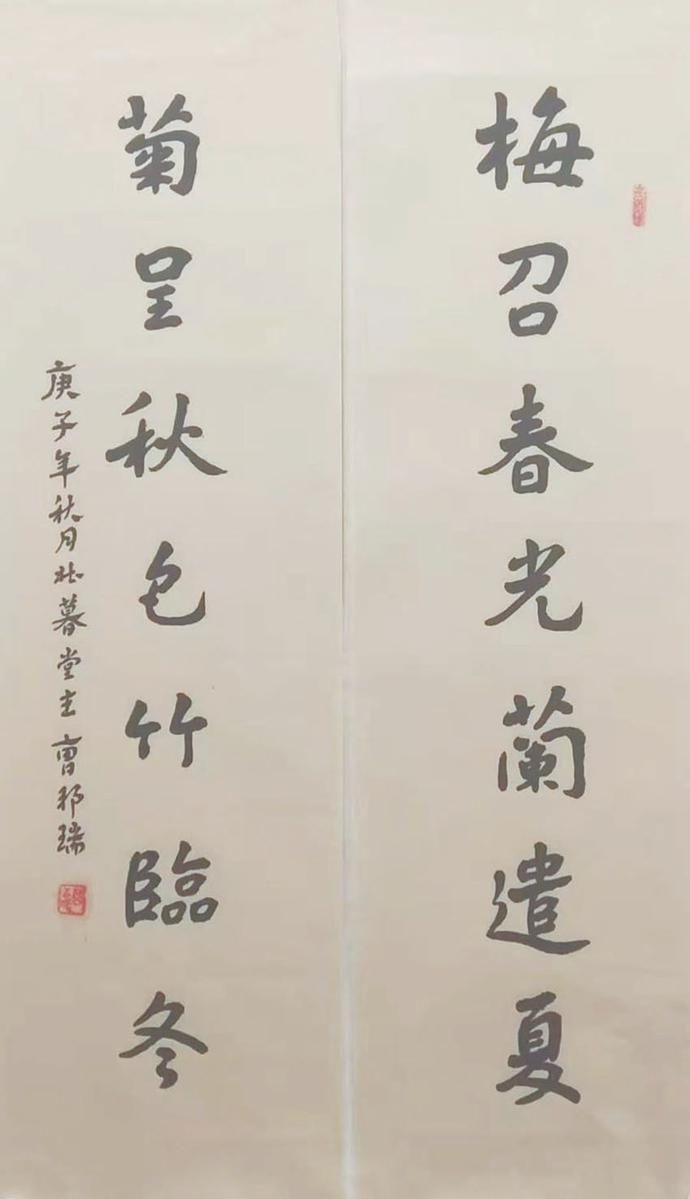 梅召春光蘭遣夏
菊呈秋色竹臨冬
庚子年秋月壯暮堂主曹邦瑞